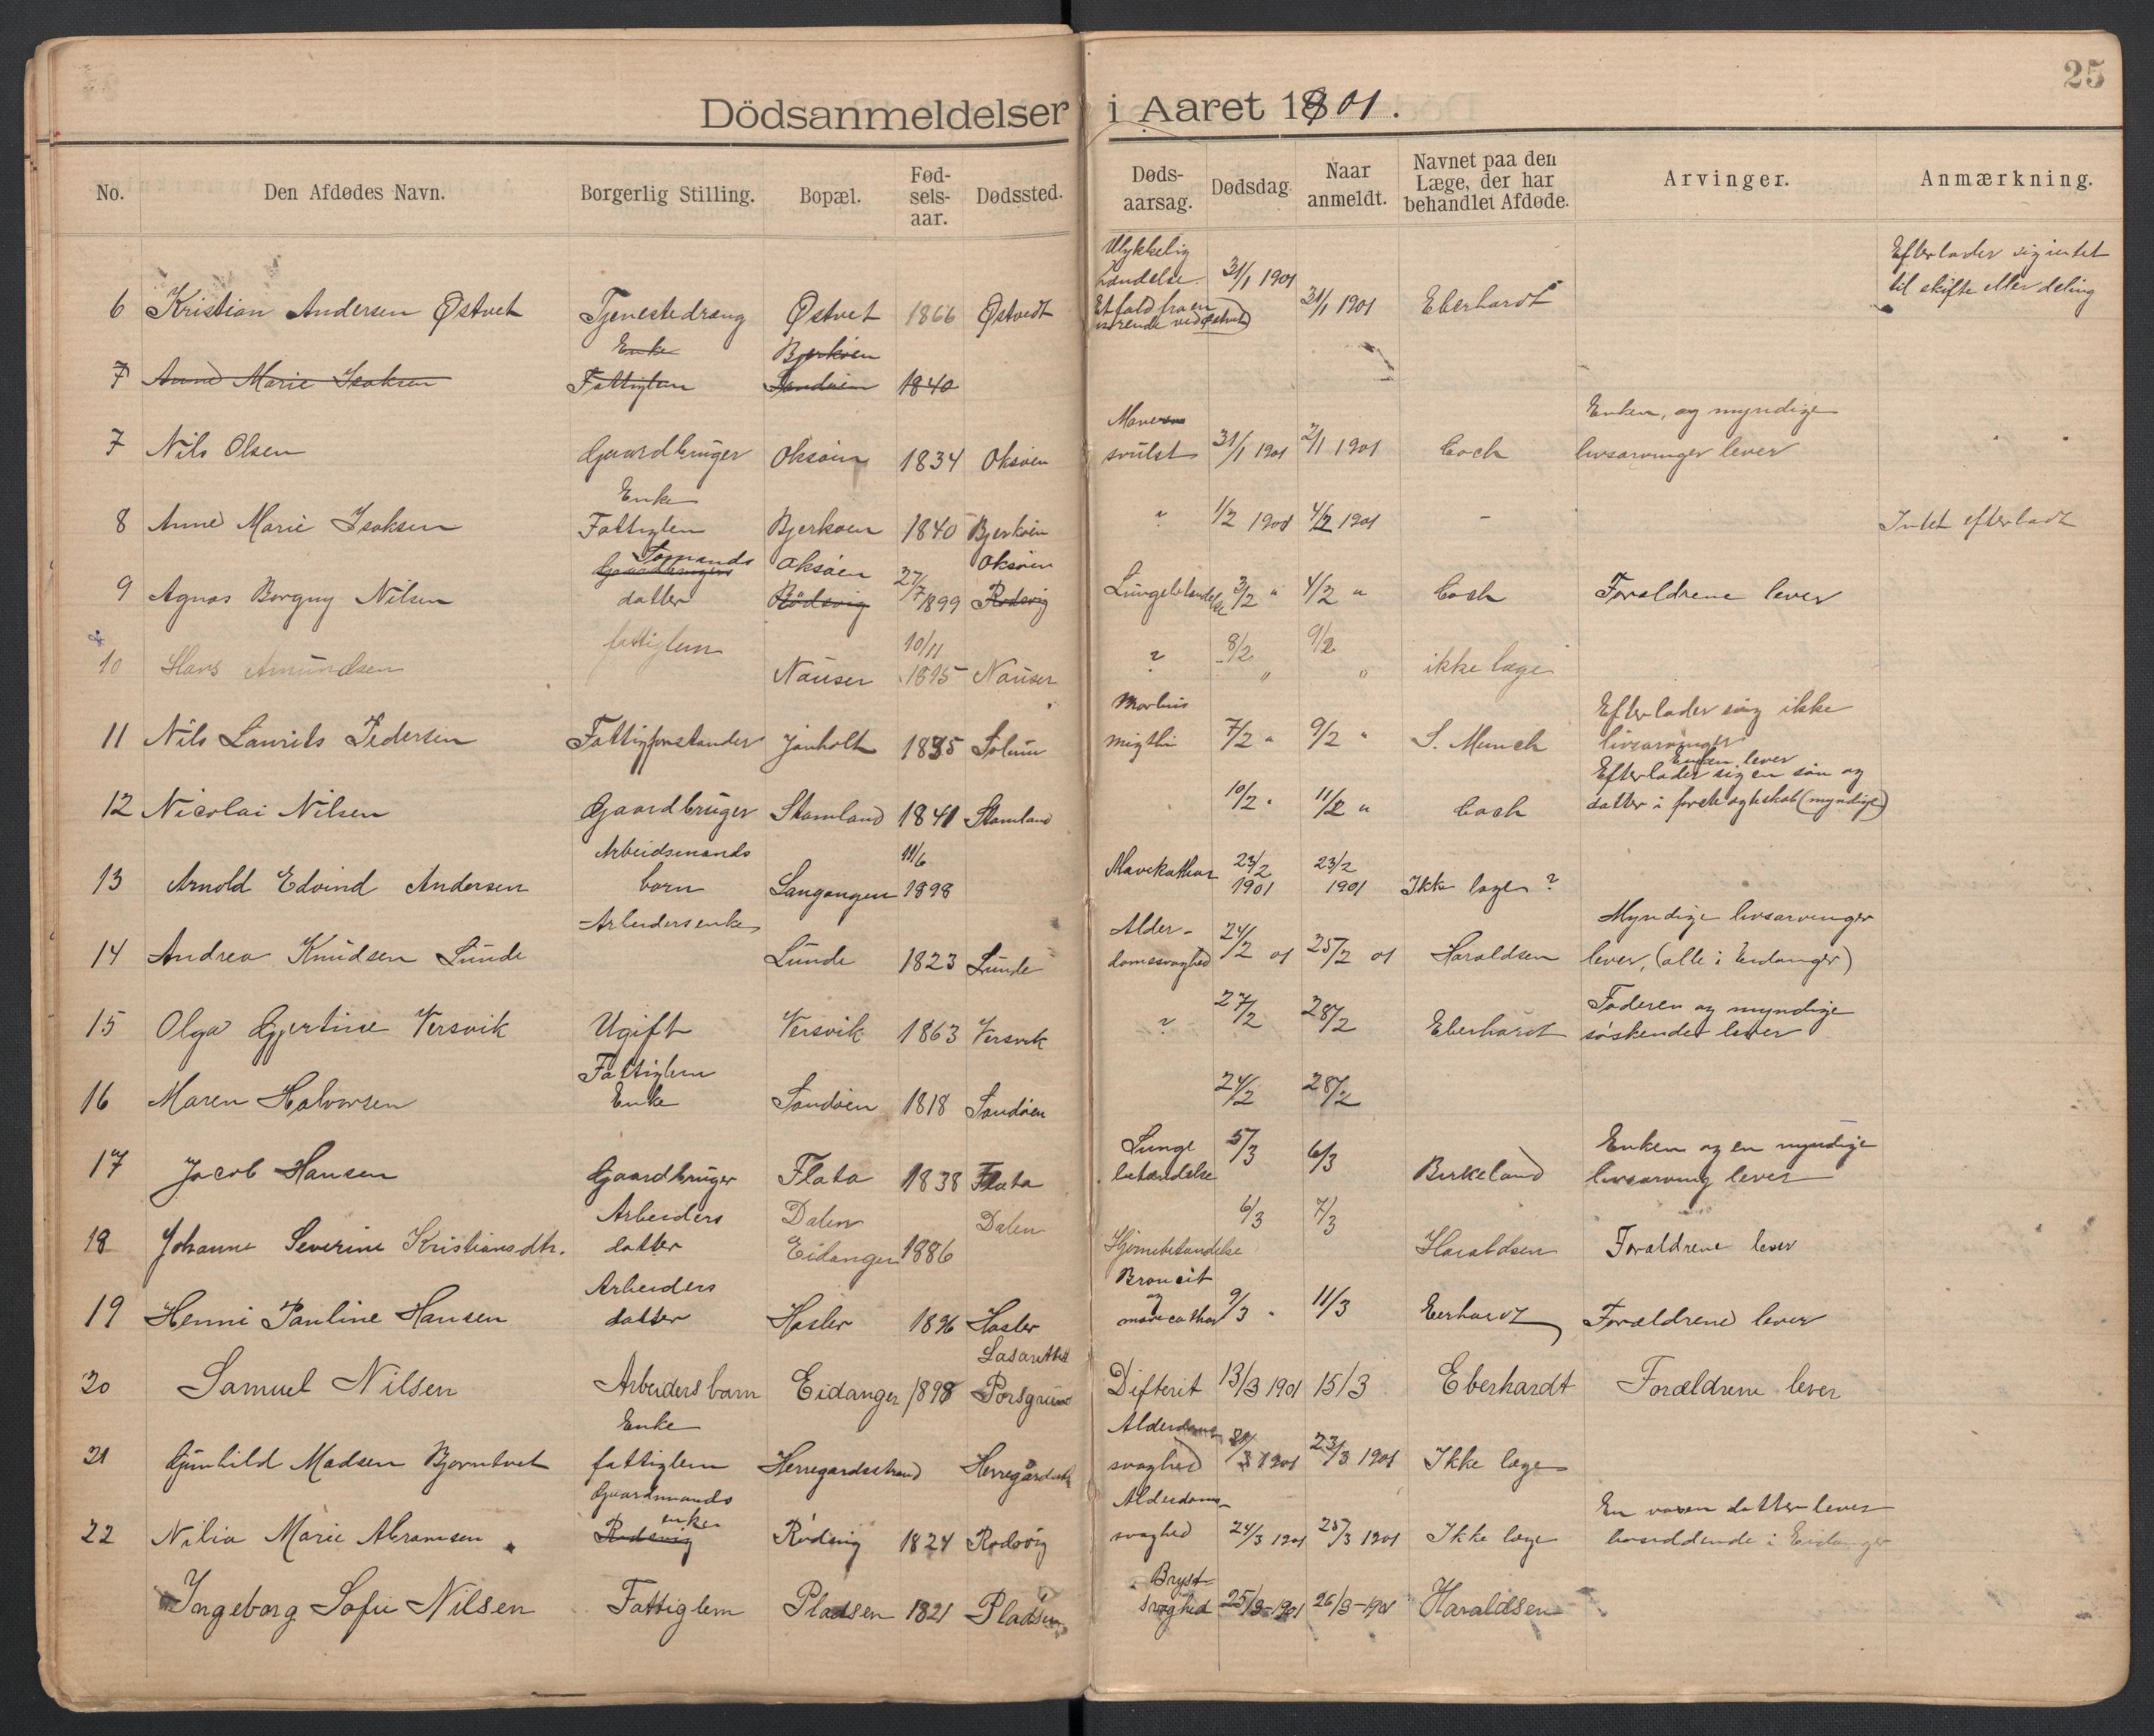 25
Dödsanmeldelser i Aaret 1901.
No. Den Afdødes Navn. Borgerlig Stilling. Bopæl. Fød-sels-aar. Dødssted. Døds-aarsag. Dødsdag Naar anmeldt. Navnet paa den Læge, der har behandlet Afdøde. Arvinger. Anmærkning.
Ulykkelig Efterlader sig intet
hændelse. 31/1 1901 til skifte eller deling
6 Kristian Andersen Østvet Tjenestedræng Østvet 1866 Østvedt Et fald fra en 31/1 1901 Eberhardt
Enke Bjerkøen
7 Anne Marie Isaksen Fattiglem Sandøen 1840
Mave Enken, og myndige
7 Nils Olsen Gaardbruger Oksøen 1834 Oksøen svulst 31/1 1901 2/1 1901 Coch livsarvinger lever
Enke
8 Anne Marie Isaksen Fattiglem Bjerkøen 1840 Bjerkøen ? 1/2 1901 4/2 1901 - Intet efterladt
Sømands Oksøen 27/7 Oksøen
9 Agnes Borgny Nilsen Gaardbrugers datter Rødsvig 1899 Rødsvig Lungebetændelse 3/2 " 4/2 " Coch Forældrene lever
fattiglem 10/11 8/2 9/2
10 Hans Amundsen Nauser 1895 Nauser ? " " ikke læge
Morbus Efterlader sig ikke
11 Nils Laurits Pedersen Fattigforstander Jønholt 1835 Solum 7/2 " 9/2 " S. Munch livsarvinger
Enken lever
Efterlader sig en søn og
12 Nicolai Nilsen Gaardbruger Skamland 1841 Skamland 10/2 " 11/2 " Coch datter i første ægteskab (myndige)
Arbeidsmands 11/6 23/2 23/2
13 Arnold Edvind Andersen barn Langangen 1898 Mavekathar 1901 1901 Ikke læge ?
Arbeidersenke Alder- Myndige livsarvinger
14 Andrea Knudsen Lunde Lunde 1823 Lunde domssvaghed 24/2 01 25/2 01 Haraldsen lever, (alle i Eidanger)
27/2 28/2 Faderen og myndige
15 Olga Gjertine Versvik Ugift Versvik 1863 Versvik ? Eberhardt søskender lever
Fattiglem
16 Maren Halvorsen Enke Sandøen 1818 Sandøen 24/2 28/2
Lunge 5/3 6/3 Enken og en myndige
17 Jacob Hansen Gaardbruger Flata 1838 Flata betændelse Birkeland livsarving lever
Arbeiders Dalen Dalen 6/3 7/3
18 Johanne Severine Kristiansdtr. datter Eidanger 1886 Hjernebetændelse Haraldsen Forældrene lever
Arbeiders Broncit
og
19 Henni Pauline Hansen datter Hasler 1896 Hasler mavecathar 9/3 " 11/3 Eerhardt Forældrene lever
Lasarettet
20 Samuel Nilsen Arbeidersbarn Eidanger 1898 Porsgrund Difterit 13/3 1901 15/3 Eberhardt Forældrene lever
Enke Alderdoms
21 Gunhild Madsen Bjørntvet fattiglem Herregardsstrand svaghed 1901 23/3 1901 Ikke læge
Gaardmands Alderdoms- En voxen datter lever
enke
22 Nilia Marie Abramsen Rødsvig Rødsvig 1824 Rødsvig svaghed 24/3 1901 25/3 1901 Ikke læge bosiddende i Eidanger
Bryst-
Ingeborg Sofie Nilsen Fattiglem Pladsen 1821 Pladsen svaghed 25/3-1901 26/3-1901 Haraldsen